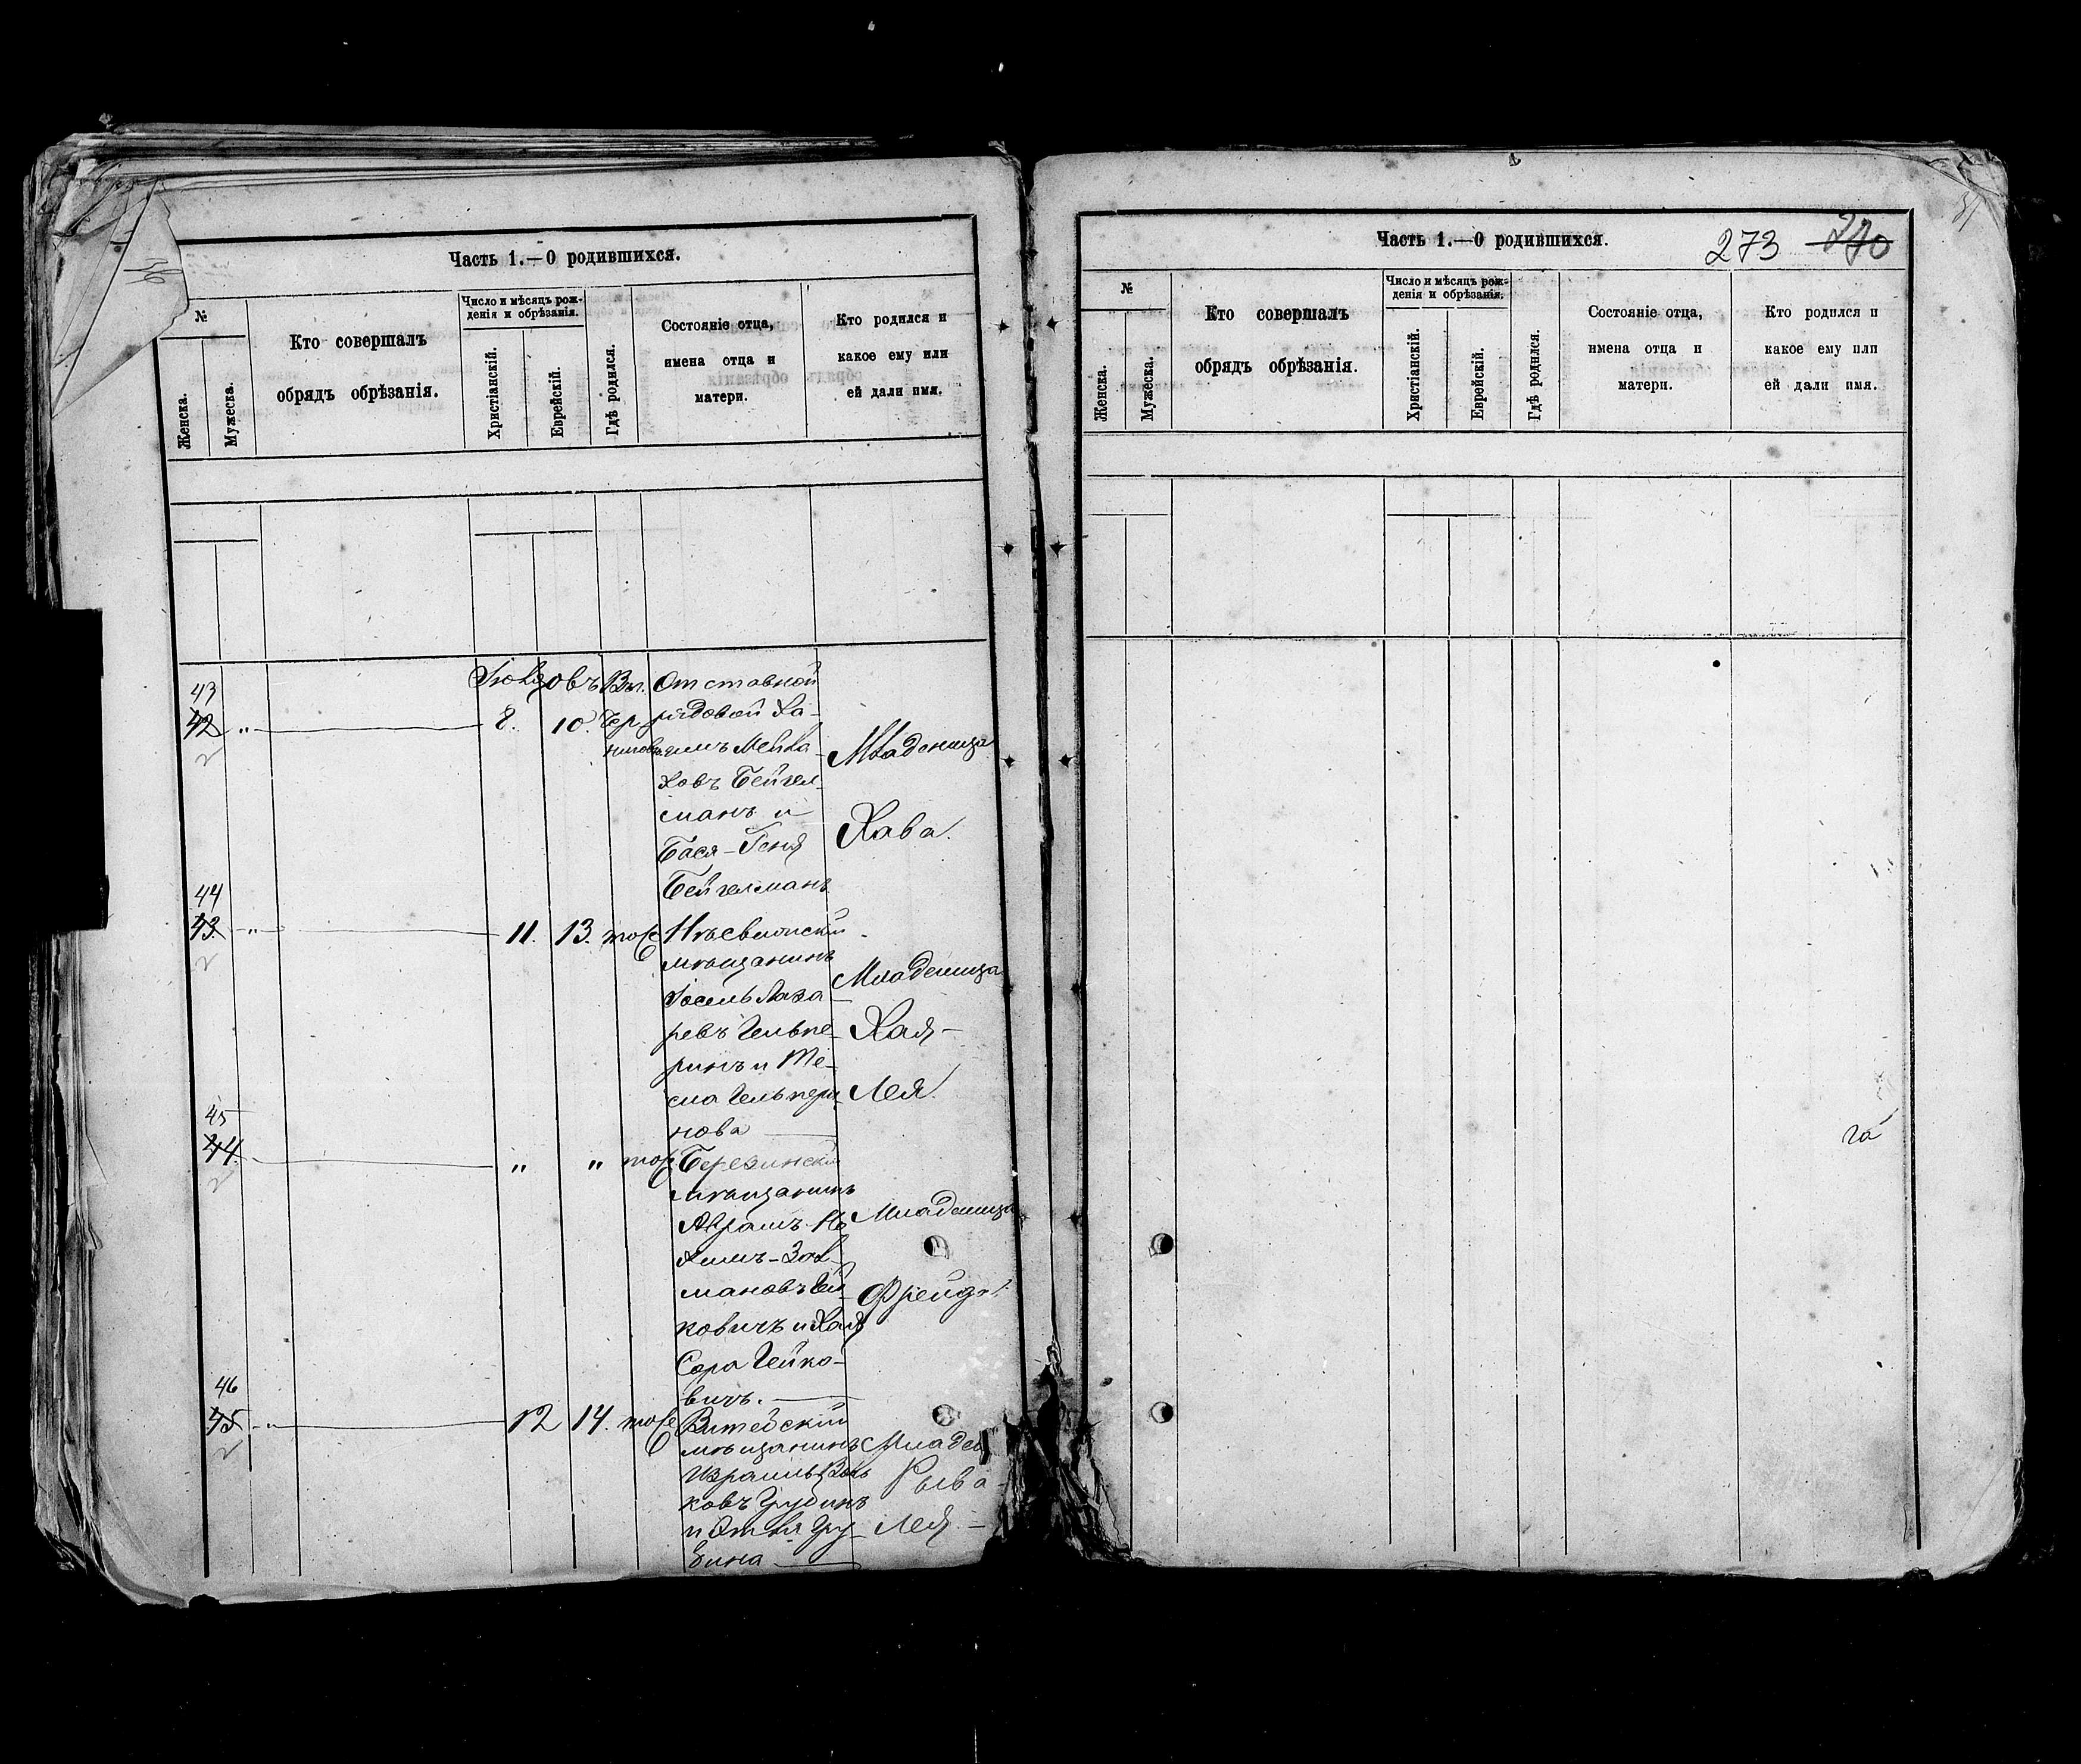 Часть 1.—О родившихся.
№
Женска.
Мужеска.
Кто совершалъ
обрядъ обрѣзанія.
Число и мѣсяцъ рож-
денія и обрѣзанія.
Христіанскій.
Еврейскій.
Гдѣ родился.
Состояніе отца,
имена отца и
матери.
Кто родился и
какое ему или
ей дали имя.
43
42 „ 8. 10. Чер
Отставной
рядовой Ха-
Ховъ Бейгел-
манъ и
Бася-Геня
Бейгелманъ
Младеница
Хава.
44
43 „ 11. 13. тоже
мѣщанинъ
Іосель Лаза-
ревъ Гельпе-
ринъ и
Гельпери-
нова
Младеница
Хая-
Лея.
45
44 „ „ тоже
Березинскій
мѣщанинъ
Абрамъ-
мановъ Гей-
ковичъ и Хая
Сора Гейко-
вичъ.
Младеница
Фрейда.
46
45 „ 12 14. тоже
Витебскій
мѣщанинъ
ковъ Грубинъ
и Гру-
бина
Младе
Рыва-
Лея.
Часть 1.—О родившихся.
273 270
№
Женска.
Мужеска.
Кто совершалъ
обрядъ обрѣзанія.
Число и мѣсяцъ рож-
денія и обрѣзанія.
Христіанскій.
Еврейскій.
Гдѣ родился.
Состояніе отца,
имена отца и
матери.
Кто родился и
какое ему или
ей дали имя.